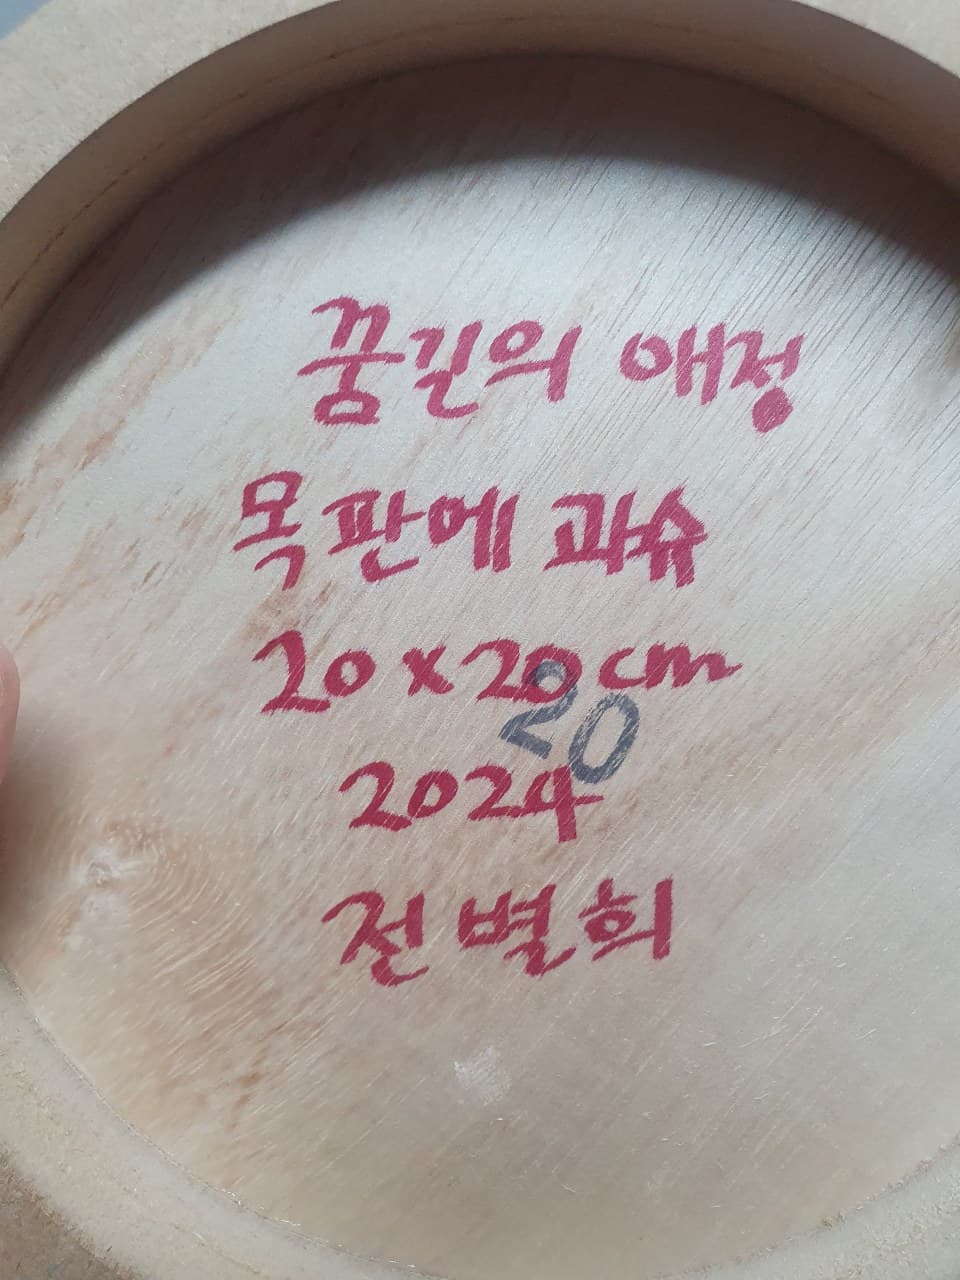 꿈길의 애정
목판에 과슈
20x20cm
20
2024
전별희